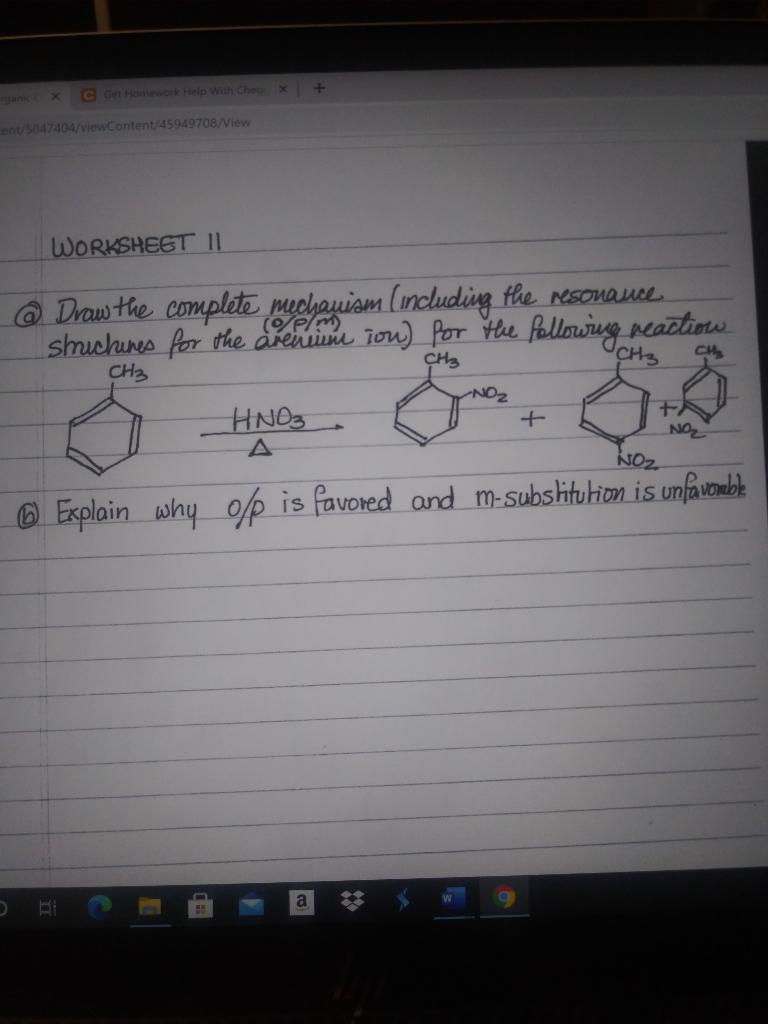 rganic C × Get Homework Help With Cheg × +
ent/5047404/viewContent/45949708/View
WORKSHEET 11
ⓐ Draw the complete mechanism (including the resonance
structures for the arenium ion) for the following reaction
(o/p/m)
CH3
HNO3
Δ
CH3
NO2
+
CH3
NO2
+
CH3
NO2
ⓑ Explain why o/p is favored and m-substitution is unfavorable
a
W